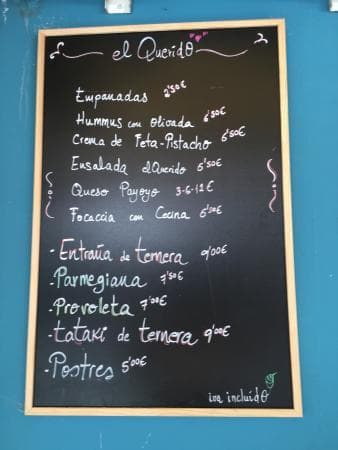 el Querido
Empanadas 2'50€
Hummus con olivada 6'50€
Crema de Feta-Pistacho 6'50€
Ensalada elQuerido 5'50€
Queso Payoyo 3-6-12€
Focaccia con Cecina 6'50€
- Entraña de ternera 9'00€
- Parmegiana 7'50€
- Provoleta 7'00€
- tataki de ternera 9'00€
- Postres 5'00€
iva incluido